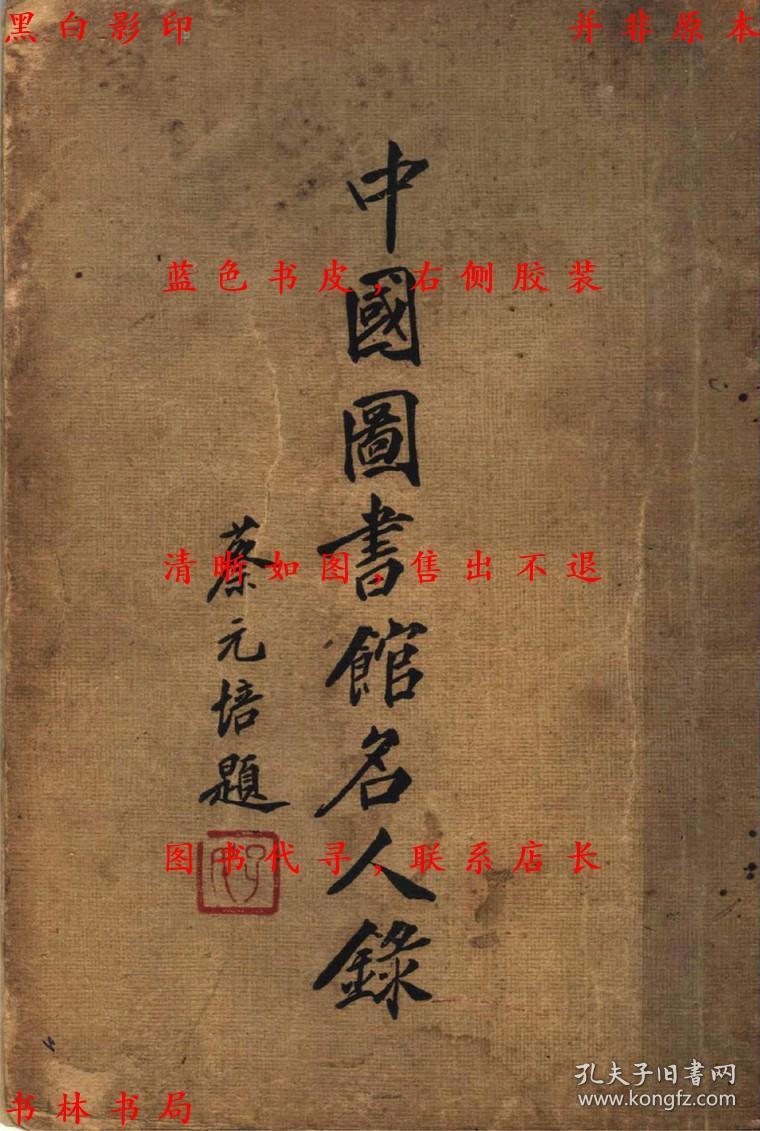 黑白影印
并非原本
中國圖書館名人錄
蔡元培題
蓝色书皮，右侧胶装
清晰如图，售出不退
图书代寻，联系店长
书林书局
孔夫子旧书网
www.kongfz.com